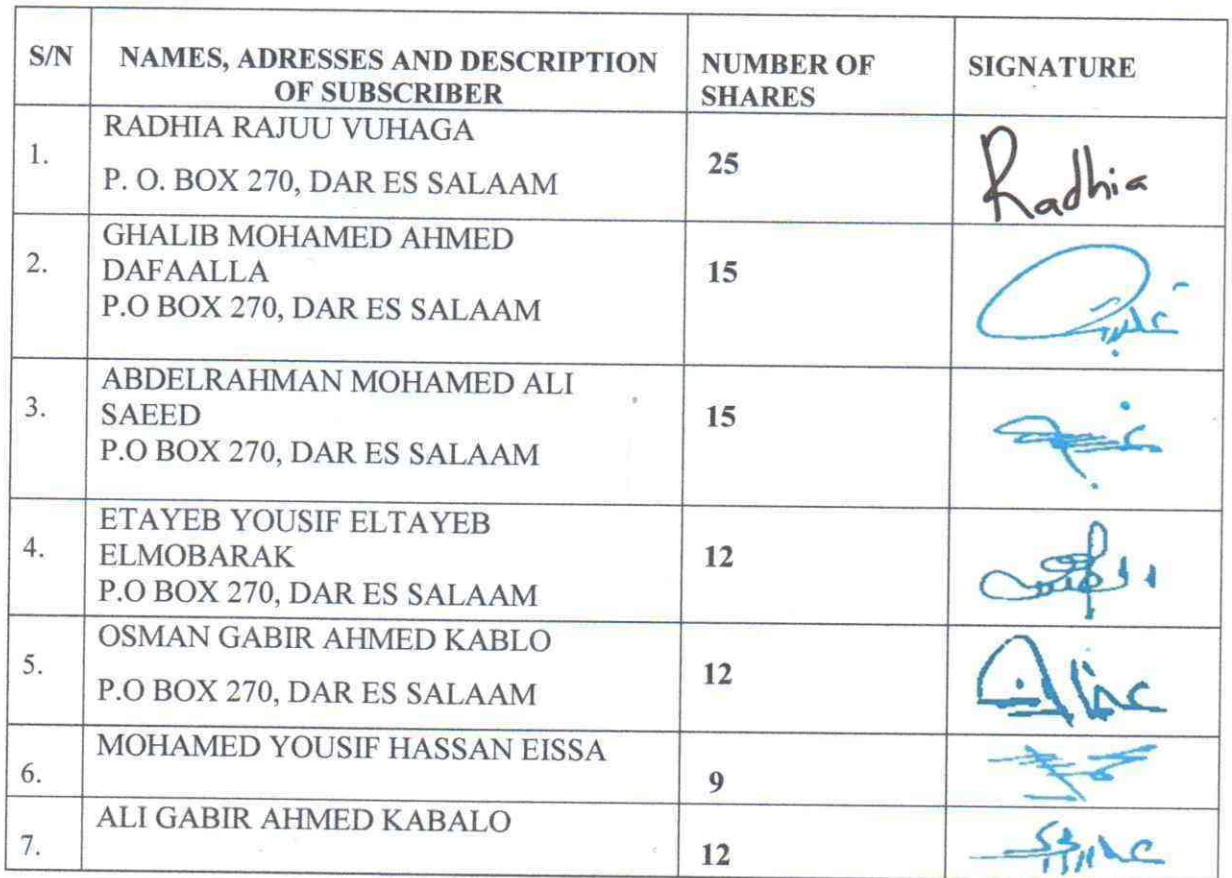 S/N
NAMES, ADRESSES AND DESCRIPTION
OF SUBSCRIBER
NUMBER OF
SHARES
SIGNATURE
1.
RADHIA RAJUU VUHAGA
P. O. BOX 270, DAR ES SALAAM
25
Radhia
2.
GHALIB MOHAMED AHMED
DAFAALLA
P.O BOX 270, DAR ES SALAAM
15
3.
ABDELRAHMAN MOHAMED ALI
SAEED
P.O BOX 270, DAR ES SALAAM
15
4.
ETAYEB YOUSIF ELTAYEB
ELMOBARAK
P.O BOX 270, DAR ES SALAAM
12
5.
OSMAN GABIR AHMED KABLO
P.O BOX 270, DAR ES SALAAM
12
6.
MOHAMED YOUSIF HASSAN EISSA
9
7.
ALI GABIR AHMED KABALO
12